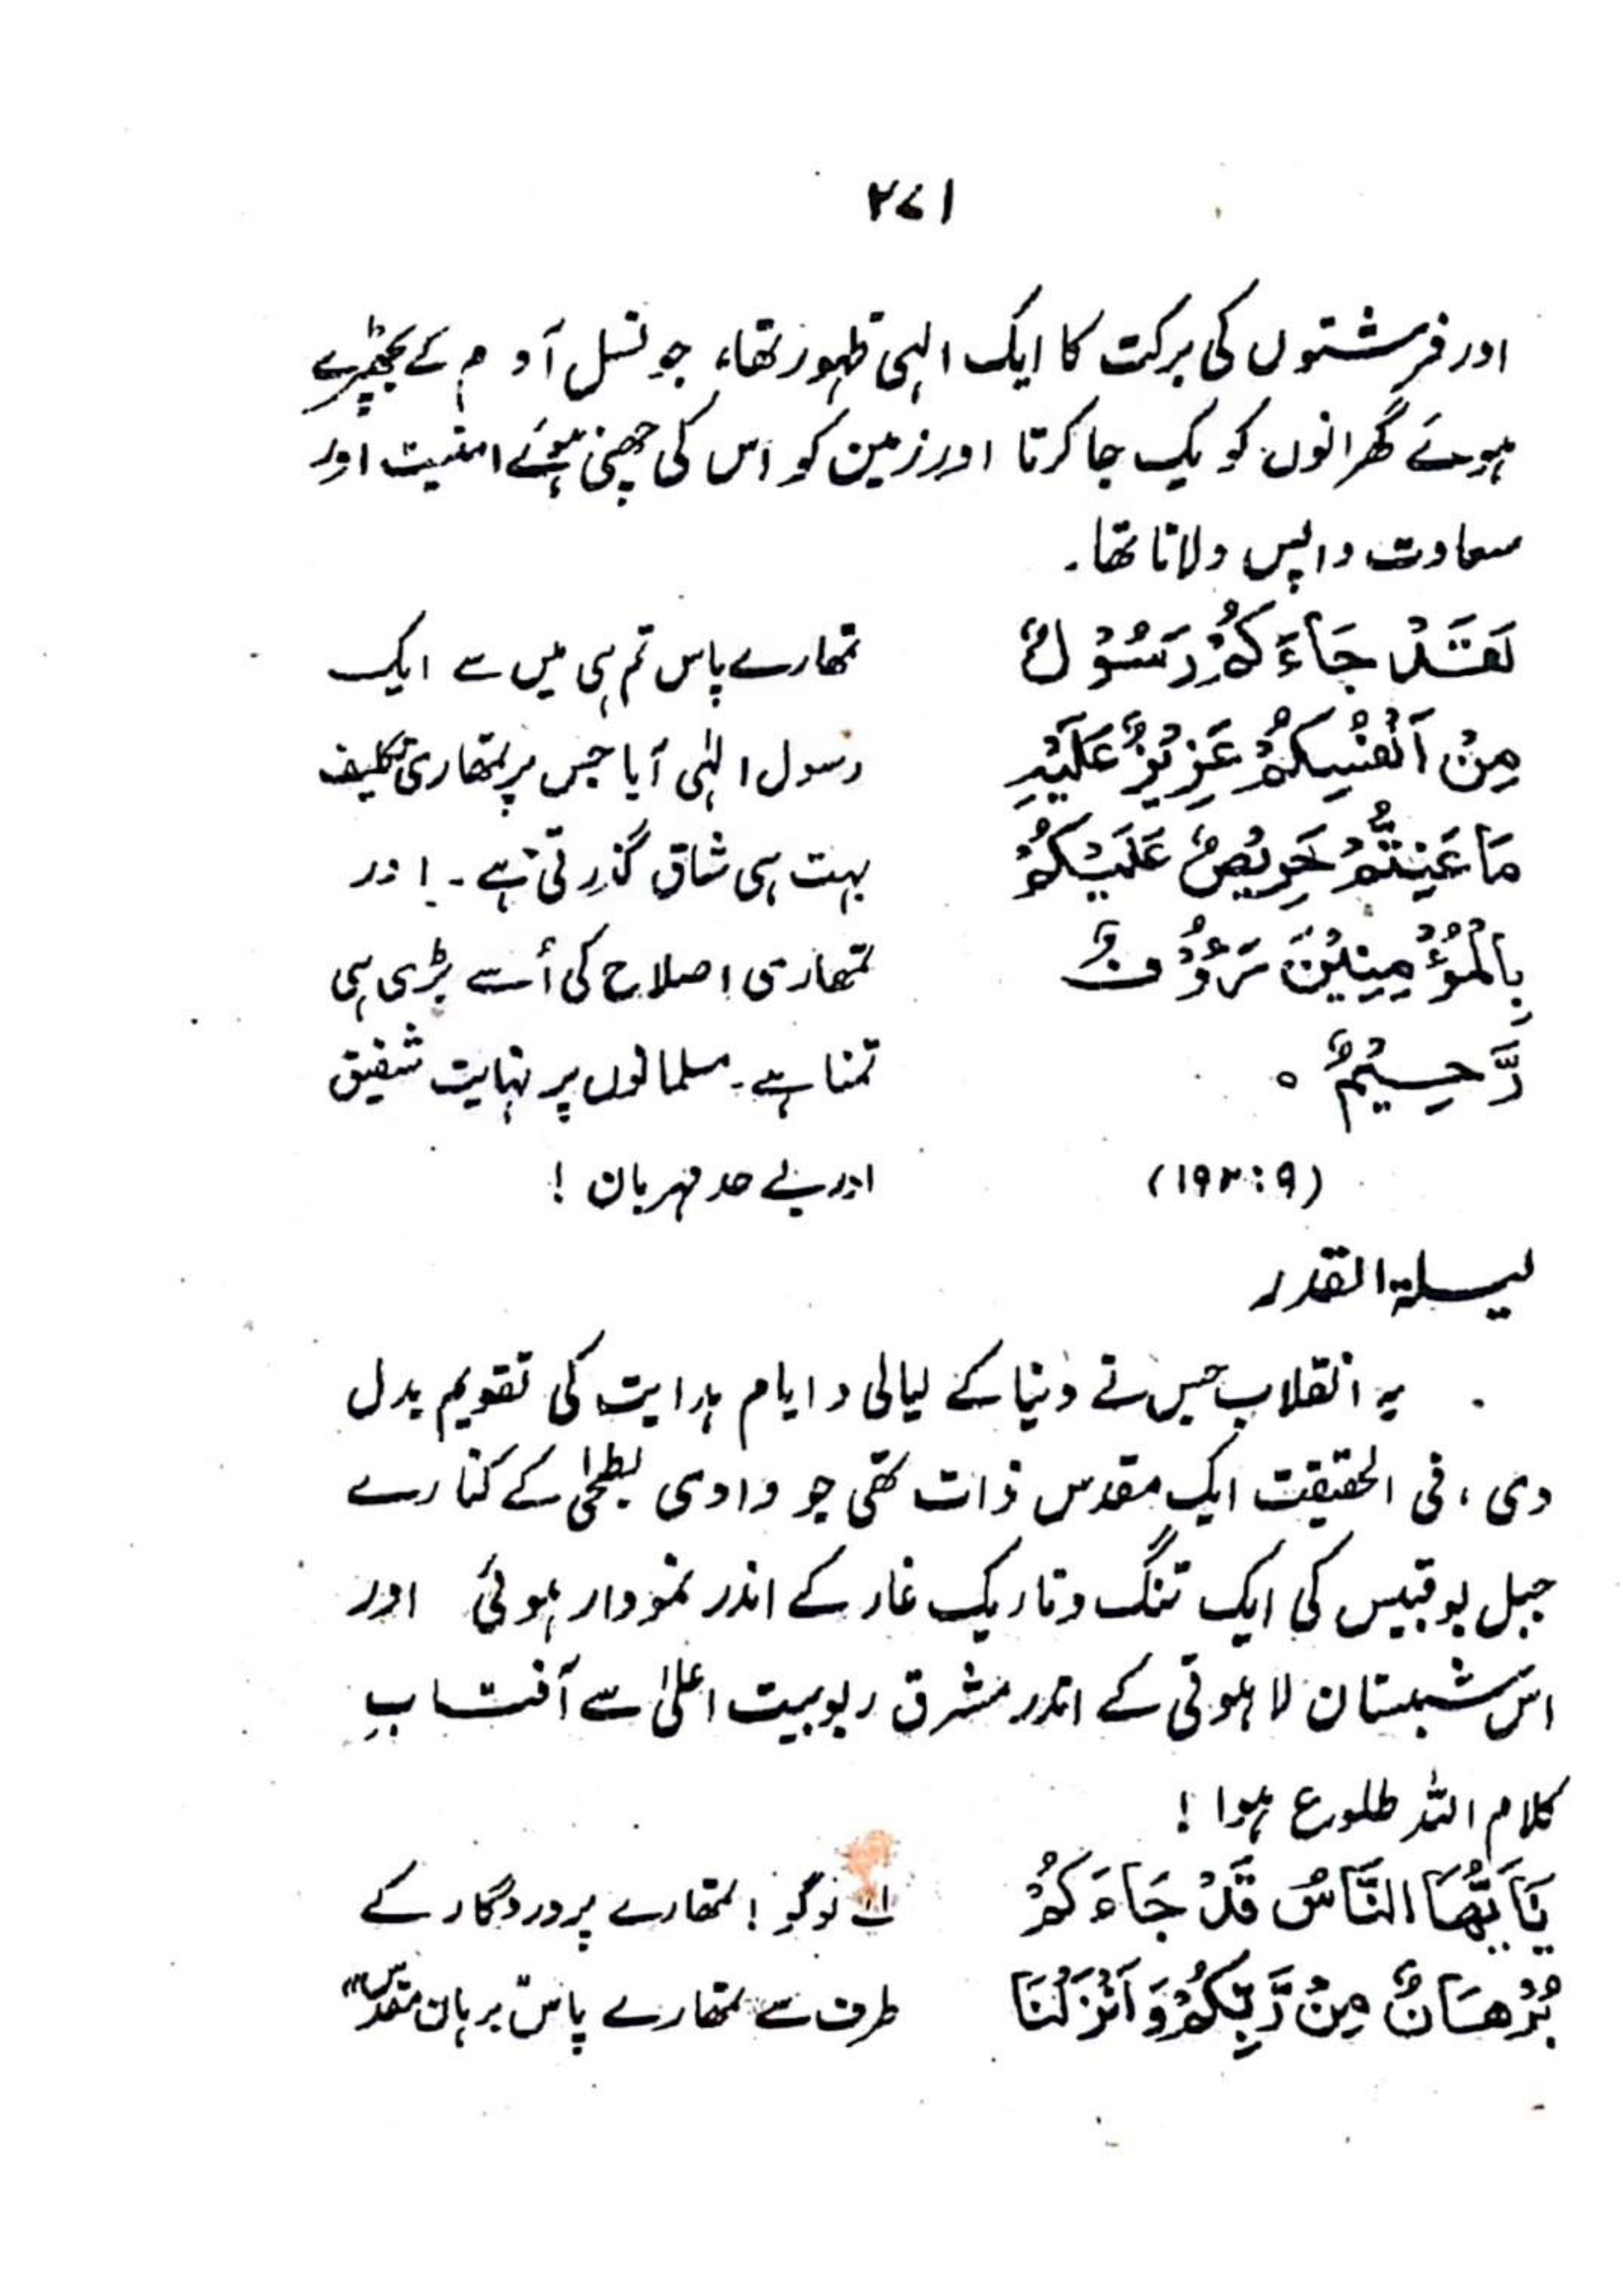 ۲۷۱
اور فرشتوں کی برکت کا ایک الہی ظہور تھا، جو نسل آدم کے بچھڑے
ہوئے گھرانوں کو یک جا کرتا اور زمین کو اس کی چھنی ہوئے امنیت اور
سعادت واپس دلاتا تھا۔
لَقَدْ جَاءَكُمْ رَسُوْلٌ
مِنْ اَنْفُسِكُمْ عَزِيْزٌ عَلَيْهِ
مَا عَنِتُّمْ حَرِيْصٌ عَلَيْكُمْ
بِالْمُؤْمِنِيْنَ رَءُوْفٌ
رَّحِيْمٌ ○
(۱۹۲:۹)
تمھارے پاس تم ہی میں سے ایک
رسول الٰہی آیا جس پر تمھاری تکلیف
بہت ہی شاق گذرتی ہے۔ اور
تمھاری اصلاح کی اُسے بڑی ہی
تمنا ہے۔ مسلمانوں پر نہایت شفیق
اور بے حد مہربان !
لیلۃ القدر
یہ انقلاب جس نے دنیا کے لیالی و ایام ہدایت کی تقویم بدل
دی، فی الحقیقت ایک مقدس ذات تھی جو وادی بطحیٰ کے کنارے
جبل بوقبیس کی ایک تنگ و تاریک غار کے اندر نمودار ہوئی اور
اس شبستان لاہوتی کے اندر مشرق ربوبیت اعلیٰ سے آفتابِ
کلام اللہ طلوع ہوا !
يَا اَيُّهَا النَّاسُ قَدْ جَاءَكُمْ
بُرْهَانٌ مِنْ رَّبِّكُمْ وَاَنْزَلْنَا
اے لوگو ! تمھارے پروردگار کے
طرف سے تمھارے پاس "برہان مقدس"